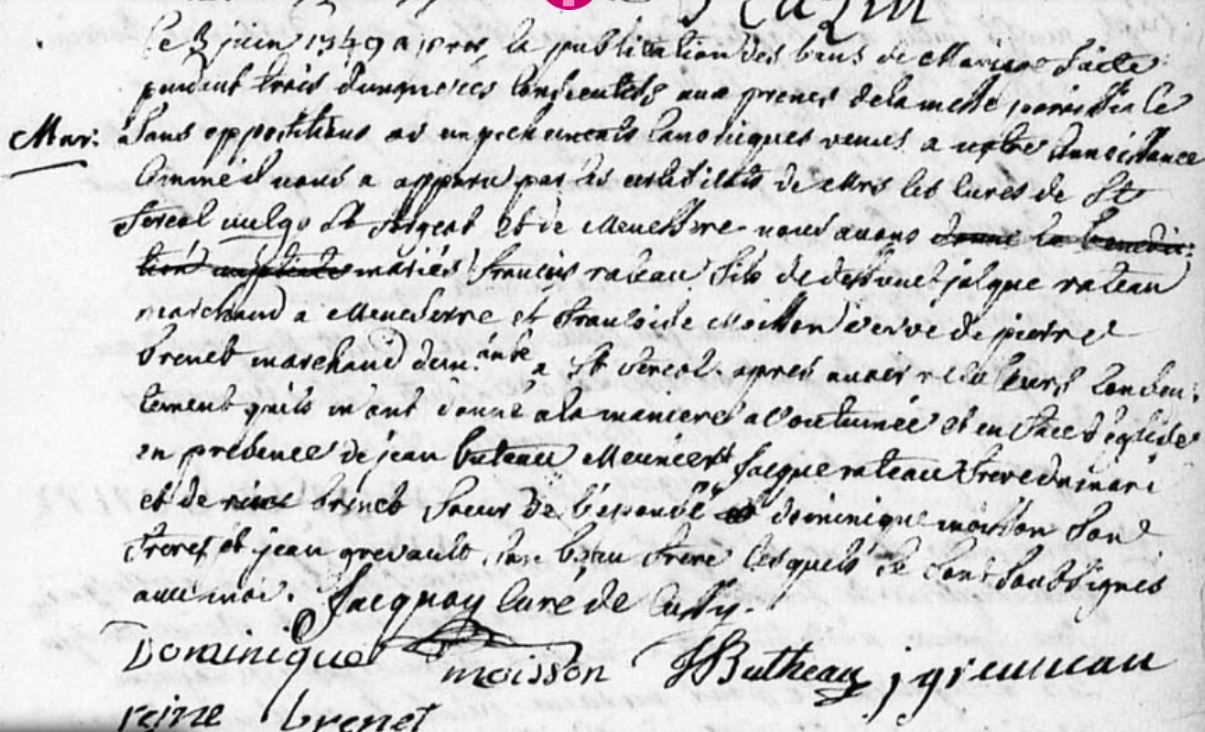 Le 3 juin 1749 apres la publication des bans de Mariage faite
pendant trois dimanches consecutifs aux prones de la messe paroissialle
Mar: Sans oppositions ni empechements canoniques venus a notre connoissance
comme il nous a apparu par les certificats de Mrs les cures de St
fereol vulgo St forgeot et de Menessere nous avons donné la benedic:
tion nuptiale mariés françois rateau fils de deffunct jacque rateau
marchand a Menesserre et francoise Moisson veuve de pierre
brenet marchand dem.ante a St fereol apres avoir recu leurs consen:
tement quils m'ont donné a la maniere accoutumée et en face d'eglise
en presence de jean buteau Meunier jacque rateau frere du mari
et de reine brenet soeur de l'epousé dominique moisson son
frere et jean son beau frere lesquels se sont soussignes
avec moi. Jacquoy curé de Cussy.
Dominique moisson JButheau
reine brenet